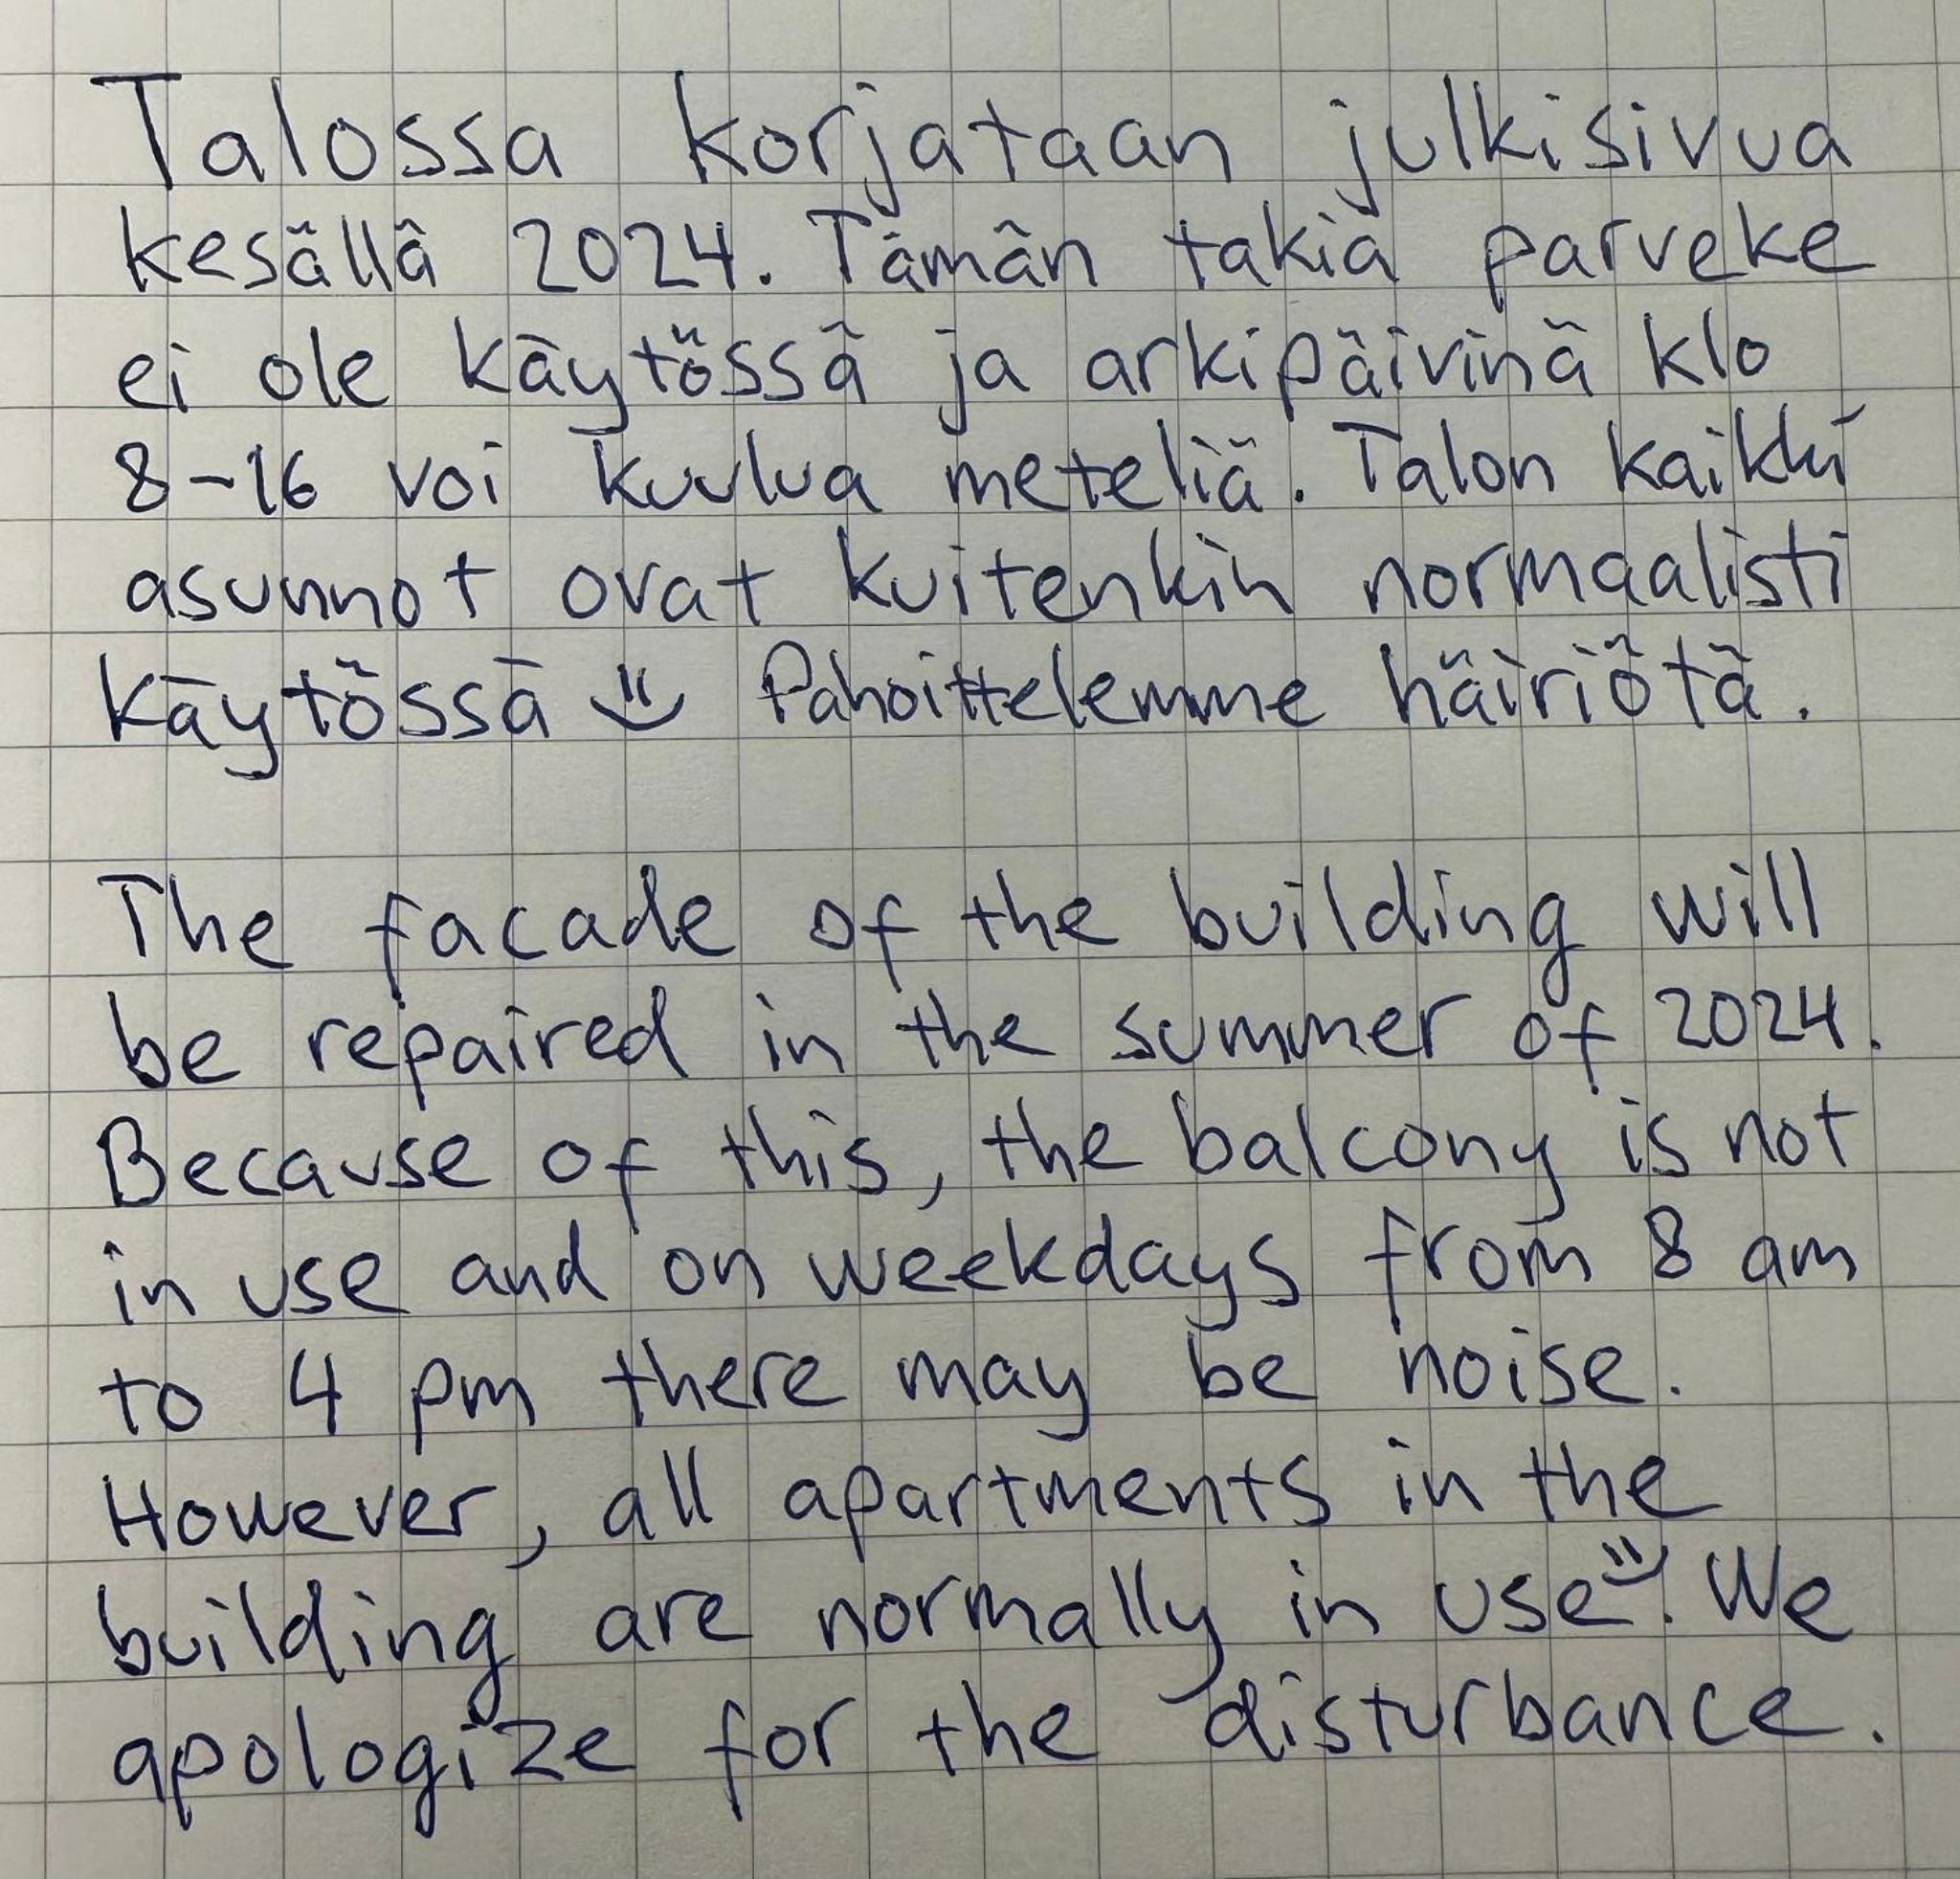 Talossa korjataan julkisivua
kesällä 2024. Tämän takia parveke
ei ole käytössä ja arkipäivinä klo
8-16 voi kuulua meteliä. Talon kaikki
asunnot ovat kuitenkin normaalisti
käytössä Pahoittelemme häiriötä.
The facade of the building will
be repaired in the summer of 2024.
Because of this, the balcony is not
in use and on weekdays from 8 am
to 4 pm there may be noise.
However, all apartments in the
building are normally in use. We
apologize for the disturbance.